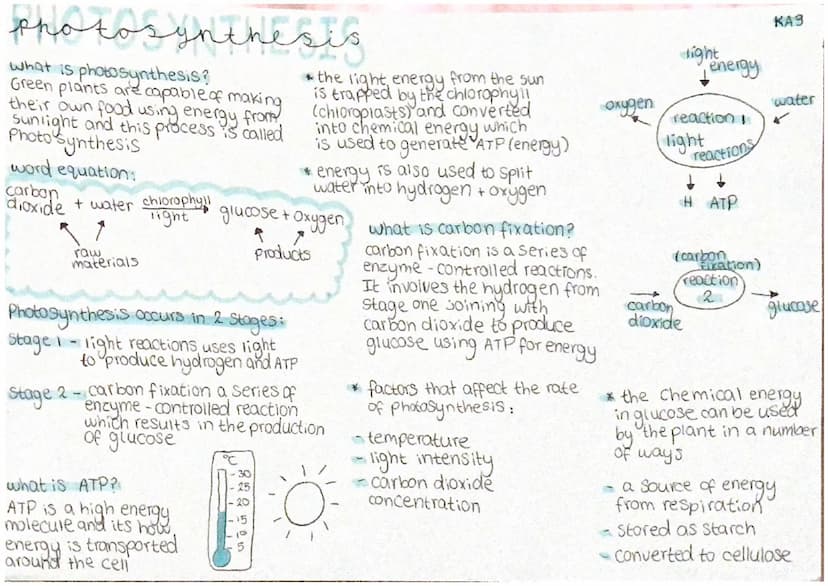 PHOTOSYNTHESIS
photosynthesis
KA9
what is photosynthesis?
Green plants are capable of making
their own food using energy from
sunlight and this process is called
Photosynthesis
word equation:
carbon dioxide + water chlorophyll light glucose + oxygen
raw materials
products
Photosynthesis occurs in 2 stages:
Stage 1 - light reactions uses light
to produce hydrogen and ATP
Stage 2 - carbon fixation a series of
enzyme - controlled reaction
which results in the production
of glucose
what is ATP?
ATP is a high energy
molecule and its how
energy is transported
around the cell
°C
30
25
20
15
10
5
* the light energy from the sun
is trapped by the chlorophyll
(chloroplasts) and converted
into chemical energy which
is used to generate ATP (energy)
* energy is also used to split
water into hydrogen + oxygen
what is carbon fixation?
carbon fixation is a series of
enzyme - controlled reactions.
It involves the hydrogen from
stage one joining with
carbon dioxide to produce
glucose using ATP for energy
* factors that affect the rate
of photosynthesis:
- temperature
- light intensity
- carbon dioxide
concentration
light
energy
oxygen
water
reaction 1
light
reactions
H ATP
(carbon
fixation)
reaction
2
carbon
dioxide
glucose
* the chemical energy
in glucose can be used
by the plant in a number
of ways
- a source of energy
from respiration
- stored as starch
- converted to cellulose